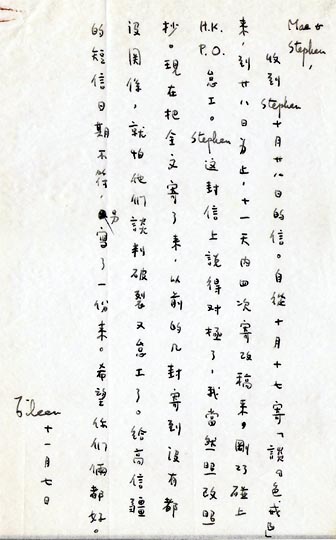 Mae & Stephen,
收到Stephen十月廿八日的信。自從十月十七寄「談《色戒》」
來,到廿八日為止,十一天內四次寄改稿來,剛巧碰上
H.K. P.O. 怠工。Stephen这封信上說得对極了,我當然照改照
抄。現在把全文寄了來,以前的几封寄到沒有都
沒関係,就怕他們談判破裂又怠工了。給高信疆
的短信日期不符,另寫了一份來。希望你们倆都好。
Eileen
十一月七日